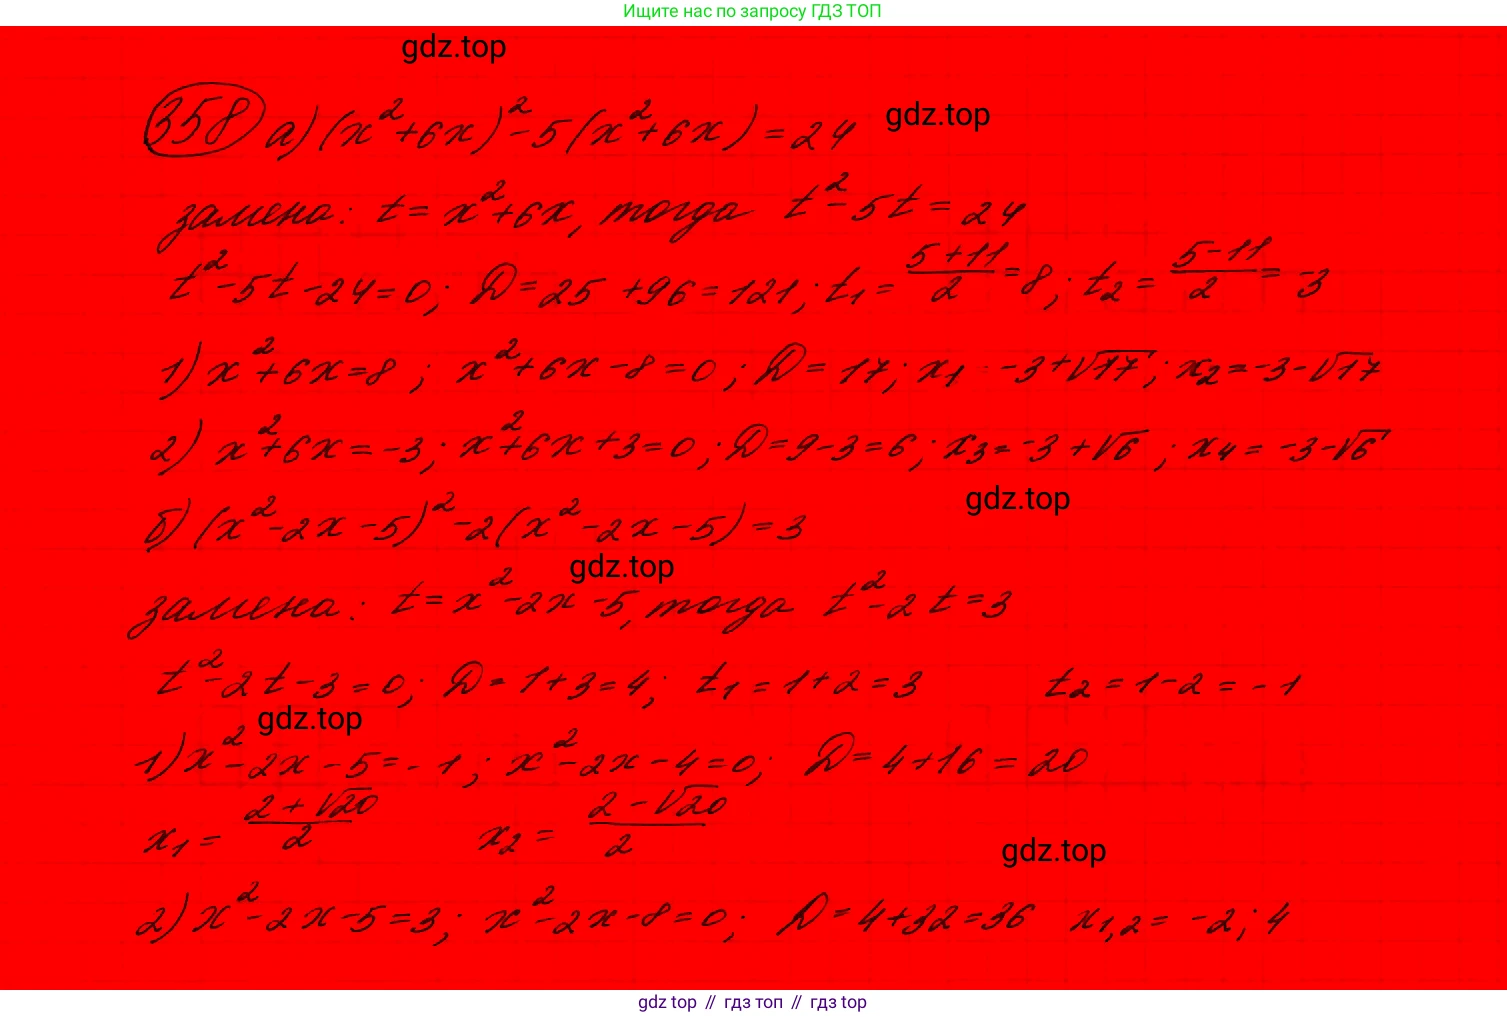 Ищите нас по запросу ГДЗ ТОП
gdz.top
358 а) (x²+6x)²-5(x²+6x)=24
gdz.top
замена: t=x²+6x, тогда t²-5t=24
t²-5t-24=0; D=25+96=121; t₁=(5+11)/2=8; t₂=(5-11)/2=-3
1) x²+6x=8; x²+6x-8=0; D=17; x₁ -3+√17; x₂=-3-√17
2) x²+6x=-3; x²+6x+3=0; D=9-3=6; x₃=-3+√6; x₄=-3-√6
gdz.top
б) (x²-2x-5)²-2(x²-2x-5)=3
gdz.top
замена: t=x²-2x-5, тогда t²-2t=3
t²-2t-3=0; D=1+3=4; t₁=1+2=3 t₂=1-2=-1
gdz.top
1) x²-2x-5=-1; x²-2x-4=0; D=4+16=20
x₁=(2+√20)/2 x₂=(2-√20)/2
gdz.top
2) x²-2x-5=3; x²-2x-8=0; D=4+32=36 x₁,₂=-2; 4
gdz top // гдз топ // гдз top